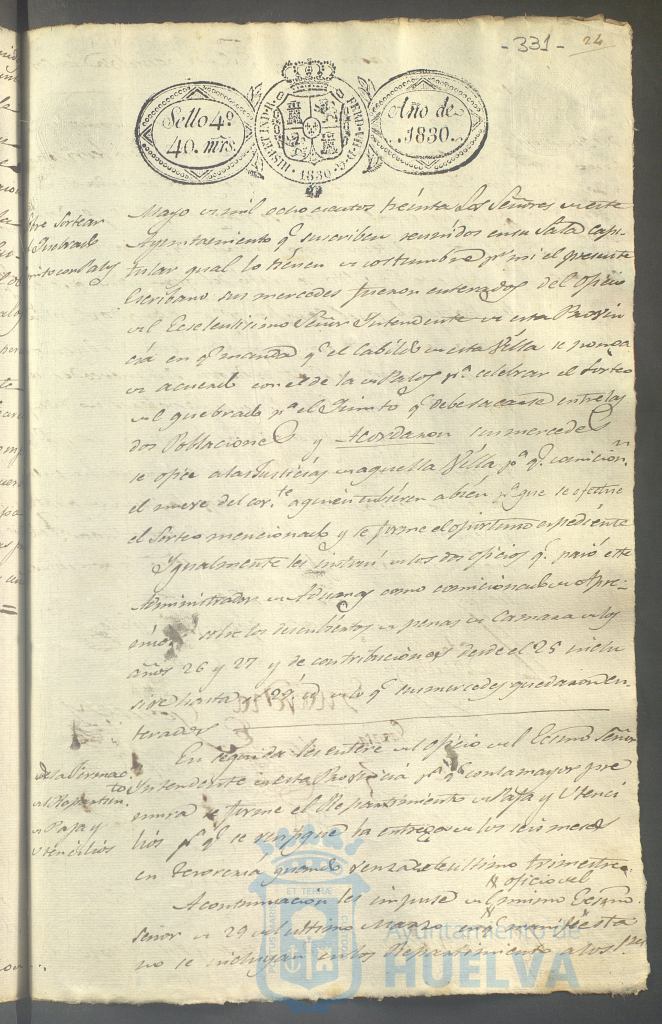 -331- 24
Sello 4º
40. mrs.
HISPET IND. R. FERD. VII. D. G. 1830
Año de
1830.
Mayo de mil ochocientos treinta Los Señores de este
Ayuntamiento q.e suscriben reunidos en su Sala capi
tular qual lo tienen de costumbre p.r mi el presente
Escribano sus mercedes fueron enterados del oficio
del Ecselentisimo Señor Yntendente de esta Provin
cia en q.e manda q.e el Cabildo de esta Villa se ponga
de acuerdo con el de la de Palos p.a celebrar el Sorteo
del quebrado p.a el Quinto q.e debe sacarse entre las
dos Poblaciones y Acordaron sus mercedes
se oficie a las Justicias de aquella Villa p.a q.e comicion.n
el nueve del cor.te a quien tubieren a bien p.a que se efectue
el Sorteo mencionado y se forme el oportuno expediente
Ygualmente les instrui de los dos oficios q.e pasó este
Administrador de Aduanas como comicionado de Apre-
mios sobre los descubiertos de penas de Camara de los
años 26 y 27 y de contribuciones desde el 25 inclu
sive hasta el 29 de lo q.e sus mercedes quedaron en-
terados
En seguida les entere del oficio del Ecsmo Señor
Yntendente de esta Provincia p.a q.e con la mayor pre
mura se forme el Repartimiento de Paja y Utenci
lios p.a q.e se verifique la entrega de los seis meses
en Tesoreria, quando venza el ultimo trimestre.
A continuacion les impuse del oficio del mismo Ecsmo.
Señor de 29 del ultimo Marzo
no se incluyan en los Repartimiento a los
Sortear
Quebrado
con Palos
de la
del Repartim.to
de Paja y
Utencilios
Ayuntamiento de
HUELVA